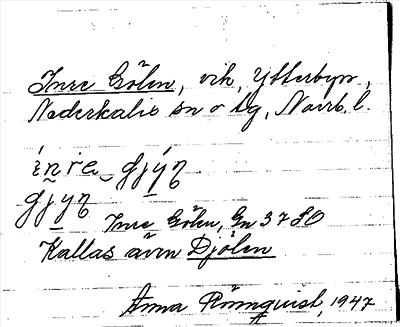 Inre Gölen, vik, Ytterbyn,
Nederkalix sn o tg, Norrb. l.
ìnre gjyn
gjyn
Inre Gölen, Gn 3780
Kallas även Djölen
Anna Rönnqvist, 1947